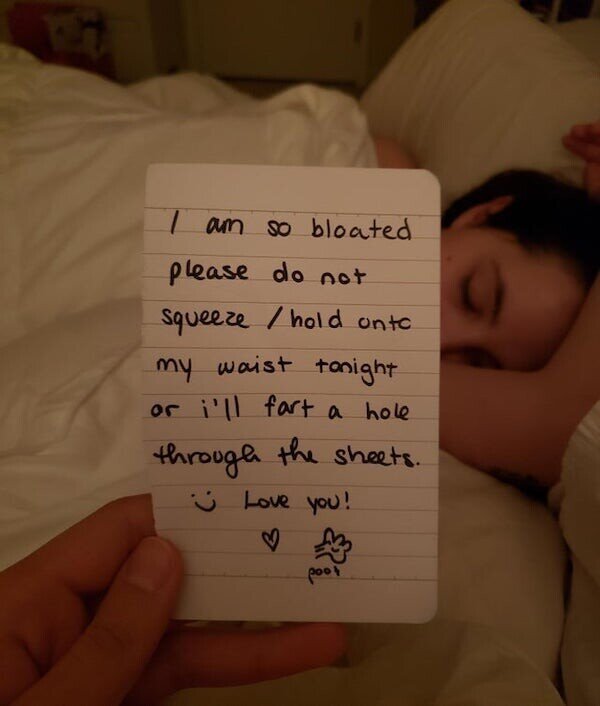 I am so bloated
please do not
squeeze / hold onto
my waist tonight
or i'll fart a hole
through the sheets.
Love you!
poot